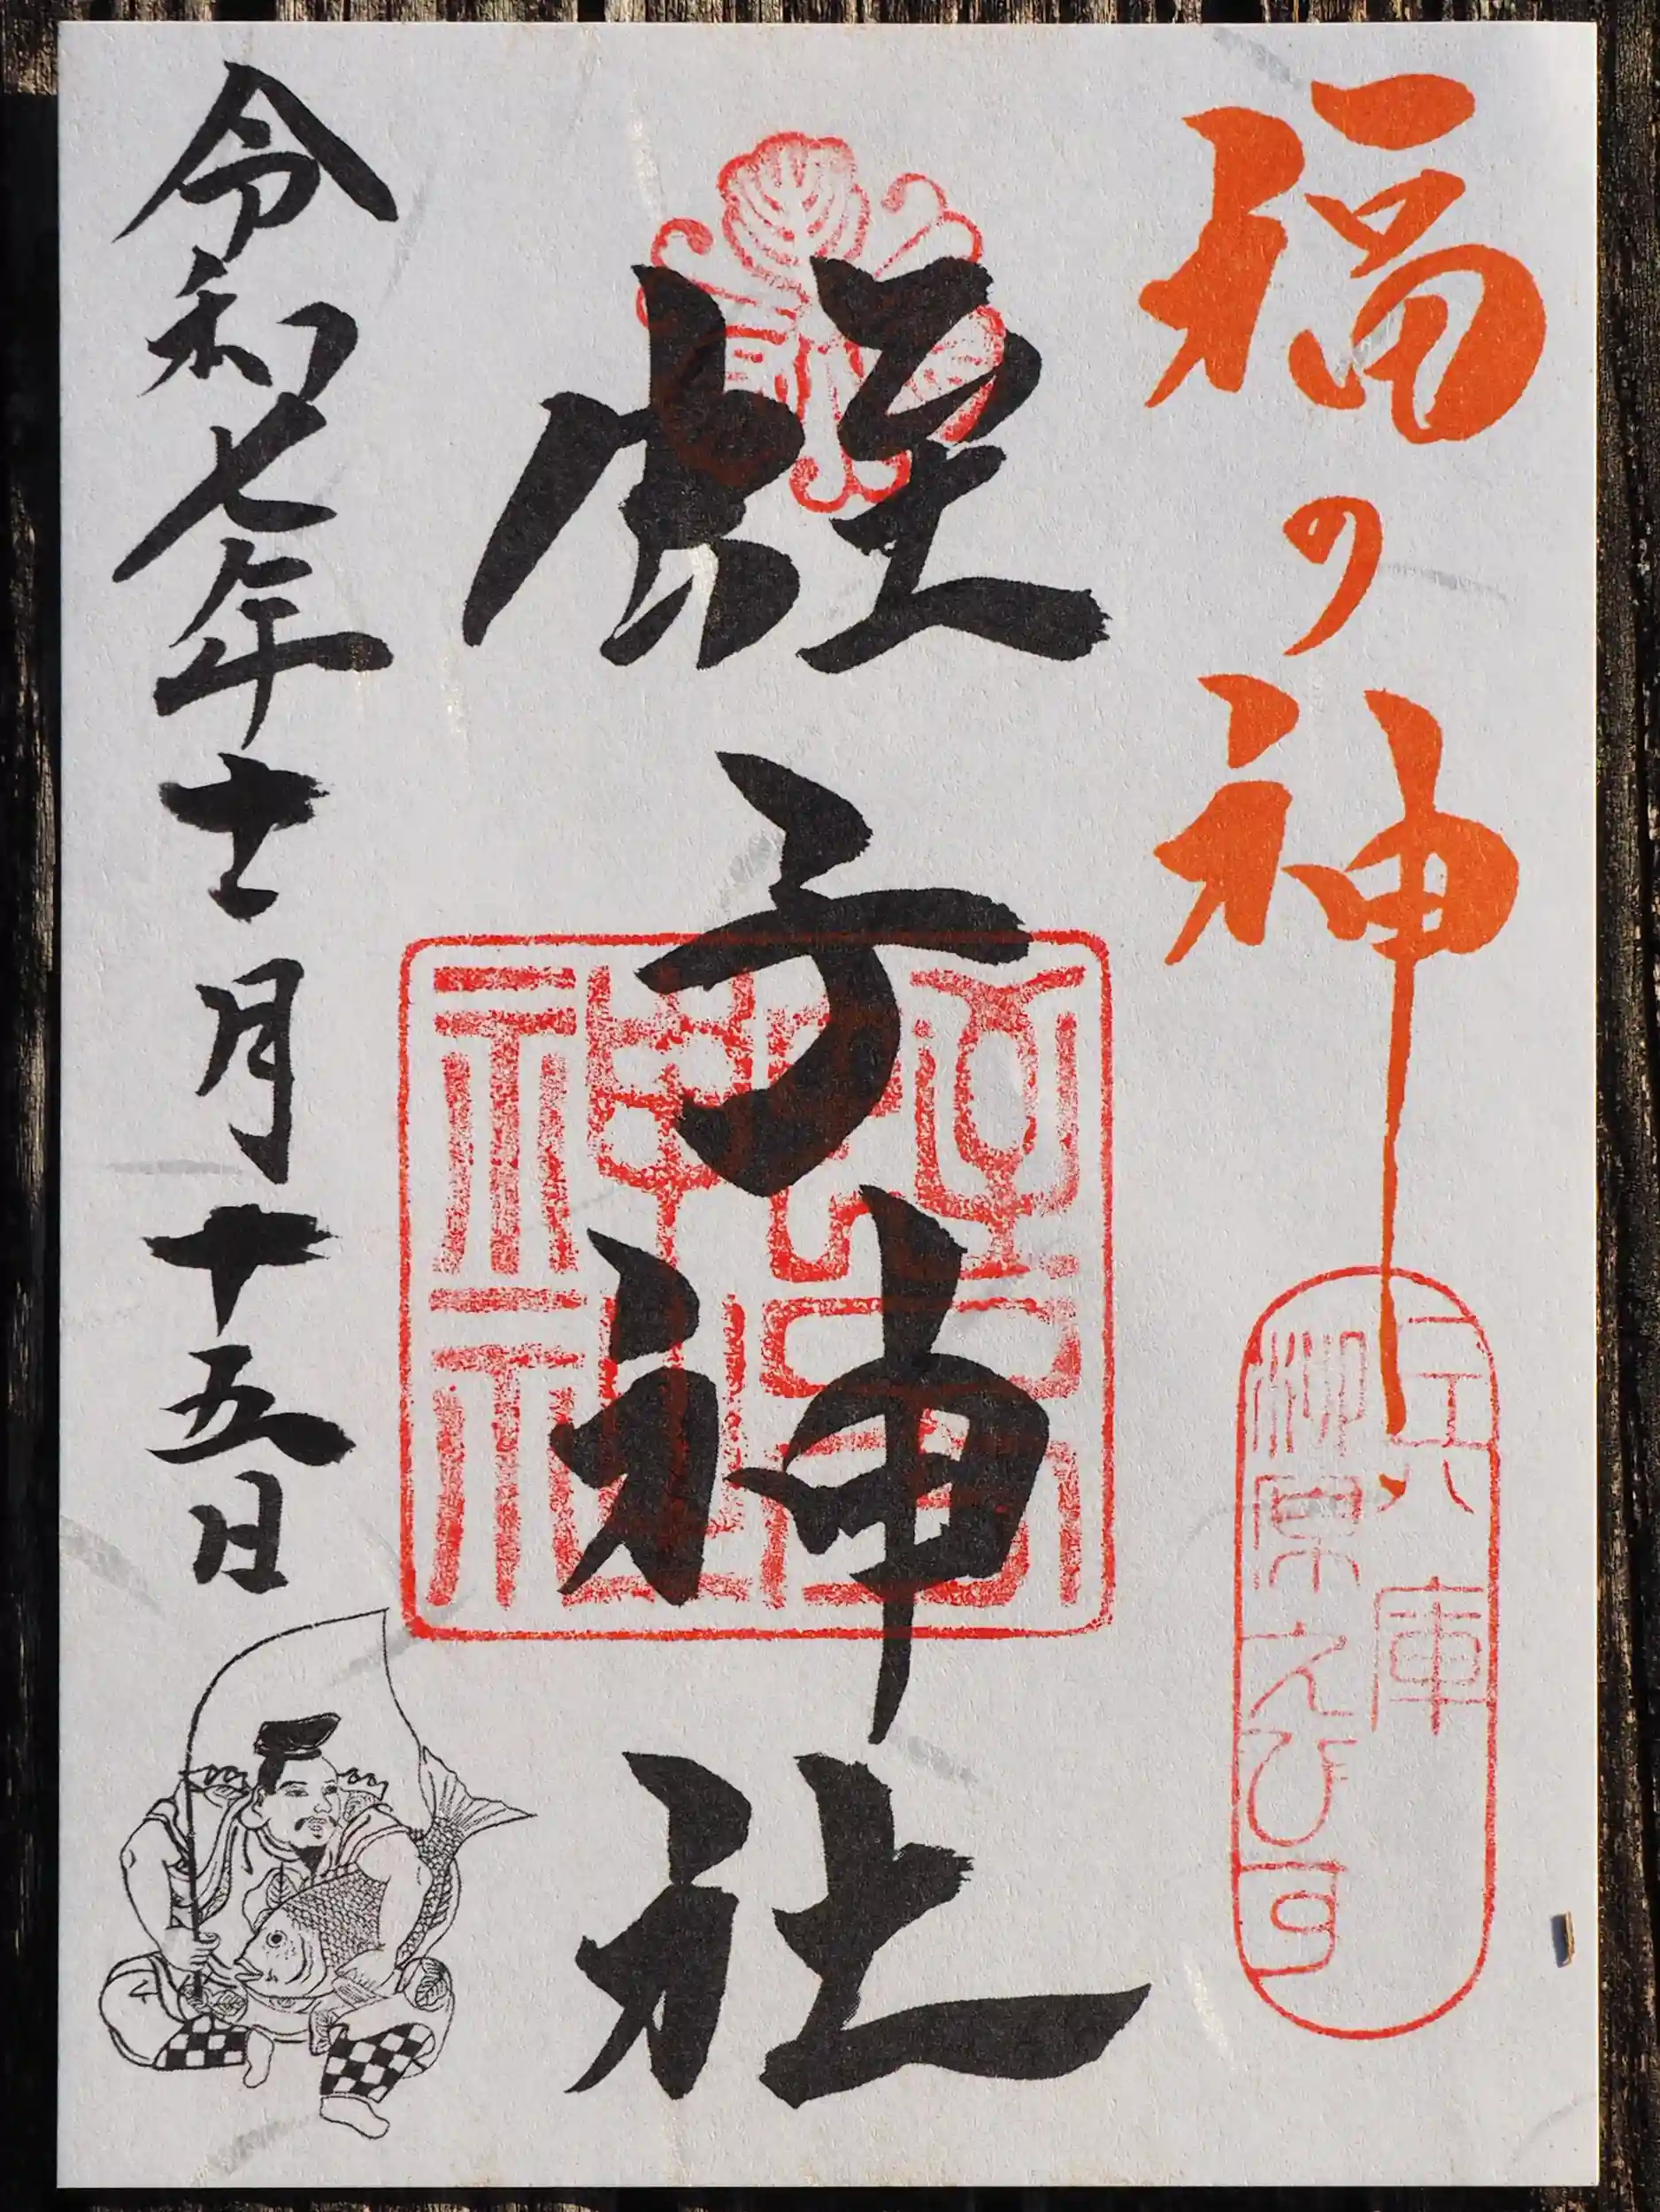 福の神
兵庫
柳原えびす
蛭子神社
令和七年十一月十五日